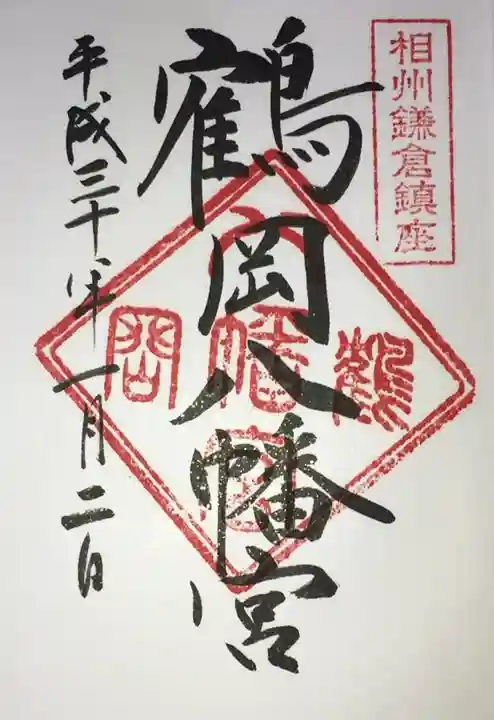 相州鎌倉鎮座
鶴岡八幡宮
鶴岡八幡宮
平成三十年一月二日